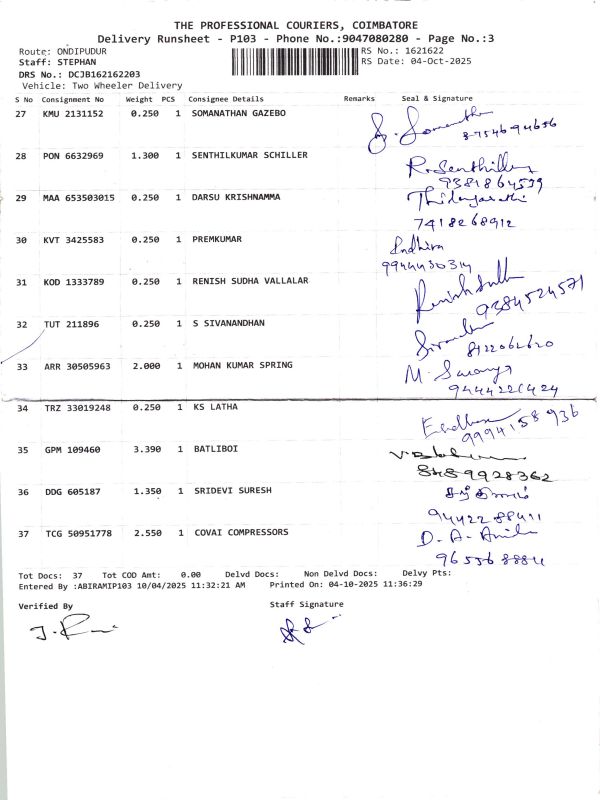 THE PROFESSIONAL COURIERS, COIMBATORE
Delivery Runsheet - P103 - Phone No.:9047080280 - Page No.:3
Route: ONDIPUDUR RS No.: 1621622
Staff: STEPHAN RS Date: 04-Oct-2025
DRS No.: DCJB162162203
Vehicle: Two Wheeler Delivery
S No Consignment No Weight PCS Consignee Details Remarks Seal & Signature
27 KMU 2131152 0.250 1 SOMANATHAN GAZEBO
8754694656
28 PON 6632969 1.300 1 SENTHILKUMAR SCHILLER
R. Senthil
9381864599
29 MAA 653503015 0.250 1 DARSU KRISHNAMMA
7418268912
30 KVT 3425583 0.250 1 PREMKUMAR
Indhira
9944430314
31 KOD 1333789 0.250 1 RENISH SUDHA VALLALAR
9384524571
32 TUT 211896 0.250 1 S SIVANANDHAN
8122062620
33 ARR 30505963 2.000 1 MOHAN KUMAR SPRING
M. Saranya
9444221424
34 TRZ 33019248 0.250 1 KS LATHA
9994158936
35 GPM 109460 3.390 1 BATLIBOI
8489928362
36 DDG 605187 1.350 1 SRIDEVI SURESH
9442288411
37 TCG 50951778 2.550 1 COVAI COMPRESSORS
D. A.
Tot Docs: 37 Tot COD Amt: 0.00 Delvd Docs: Non Delvd Docs: Delvy Pts:
Entered By :ABIRAMIP103 10/04/2025 11:32:21 AM Printed On: 04-10-2025 11:36:29
Verified By Staff Signature